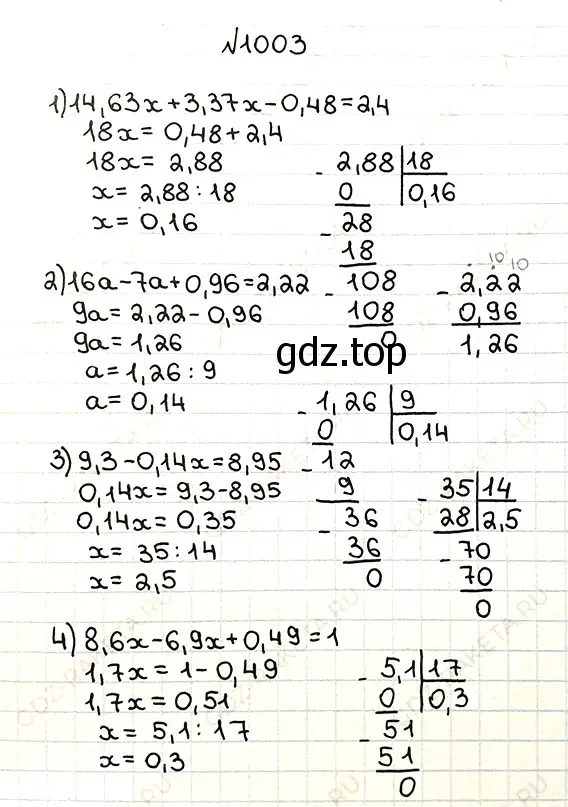 №1003
1) 14,63x + 3,37x - 0,48 = 2,4
18x = 0,48 + 2,4
18x = 2,88
x = 2,88 : 18
x = 0,16
- 2,88 | 18
0 | 0,16
- 28
18
- 108
108
0
2) 16a - 7a + 0,96 = 2,22
9a = 2,22 - 0,96
9a = 1,26
a = 1,26 : 9
a = 0,14
10 10
- 2,22
0,96
1,26
gdz.top
- 1,26 | 9
0 | 0,14
- 12
9
- 36
36
0
3) 9,3 - 0,14x = 8,95
0,14x = 9,3 - 8,95
0,14x = 0,35
x = 35 : 14
x = 2,5
- 35 | 14
28 | 2,5
- 70
70
0
4) 8,6x - 6,9x + 0,49 = 1
1,7x = 1 - 0,49
1,7x = 0,51
x = 5,1 : 17
x = 0,3
- 5,1 | 17
0 | 0,3
- 51
51
0